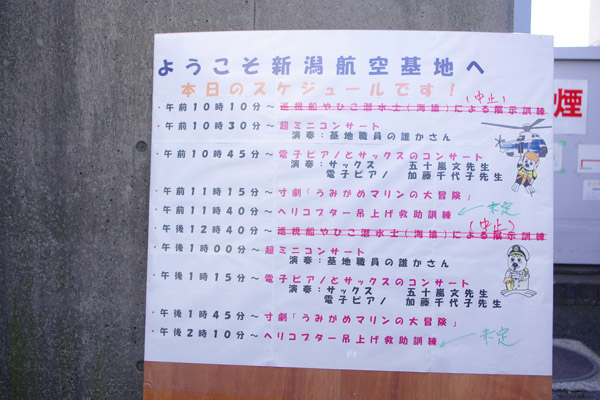 ようこそ新潟航空基地へ
本日のスケジュールです！
(中止)
・午前10時10分～巡視船やひこ潜水士(海猿)による展示訓練
・午前10時30分～超ミニコンサート
演奏：基地職員の誰かさん
・午前10時45分～電子ピアノとサックスのコンサート
演奏：サックス 五十嵐文先生
電子ピアノ 加藤千代子先生
・午前11時15分～寸劇「うみがめマリンの大冒険」
・午前11時40分～ヘリコプター吊上げ救助訓練 未定
(中止)
・午後12時40分～巡視船やひこ潜水士(海猿)による展示訓練
・午後1時00分～超ミニコンサート
演奏：基地職員の誰かさん
・午後1時15分～電子ピアノとサックスのコンサート
演奏：サックス 五十嵐文先生
電子ピアノ 加藤千代子先生
・午後1時45分～寸劇「うみがめマリンの大冒険」
・午後2時10分～ヘリコプター吊上げ救助訓練 未定
煙